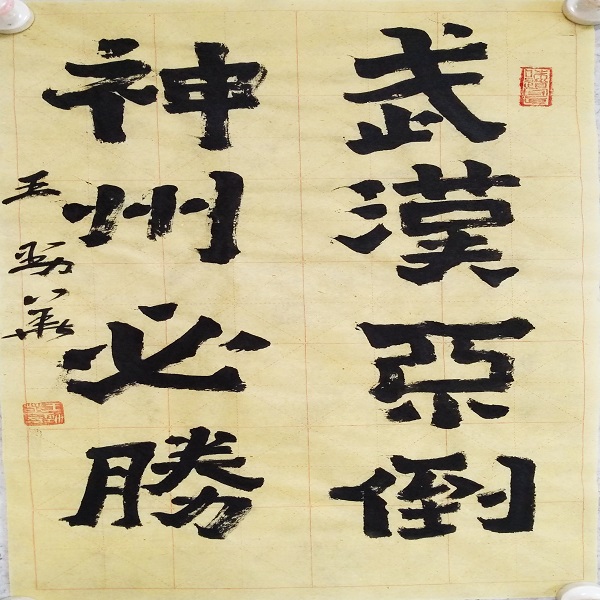 武漢不倒
神州必勝
王勁